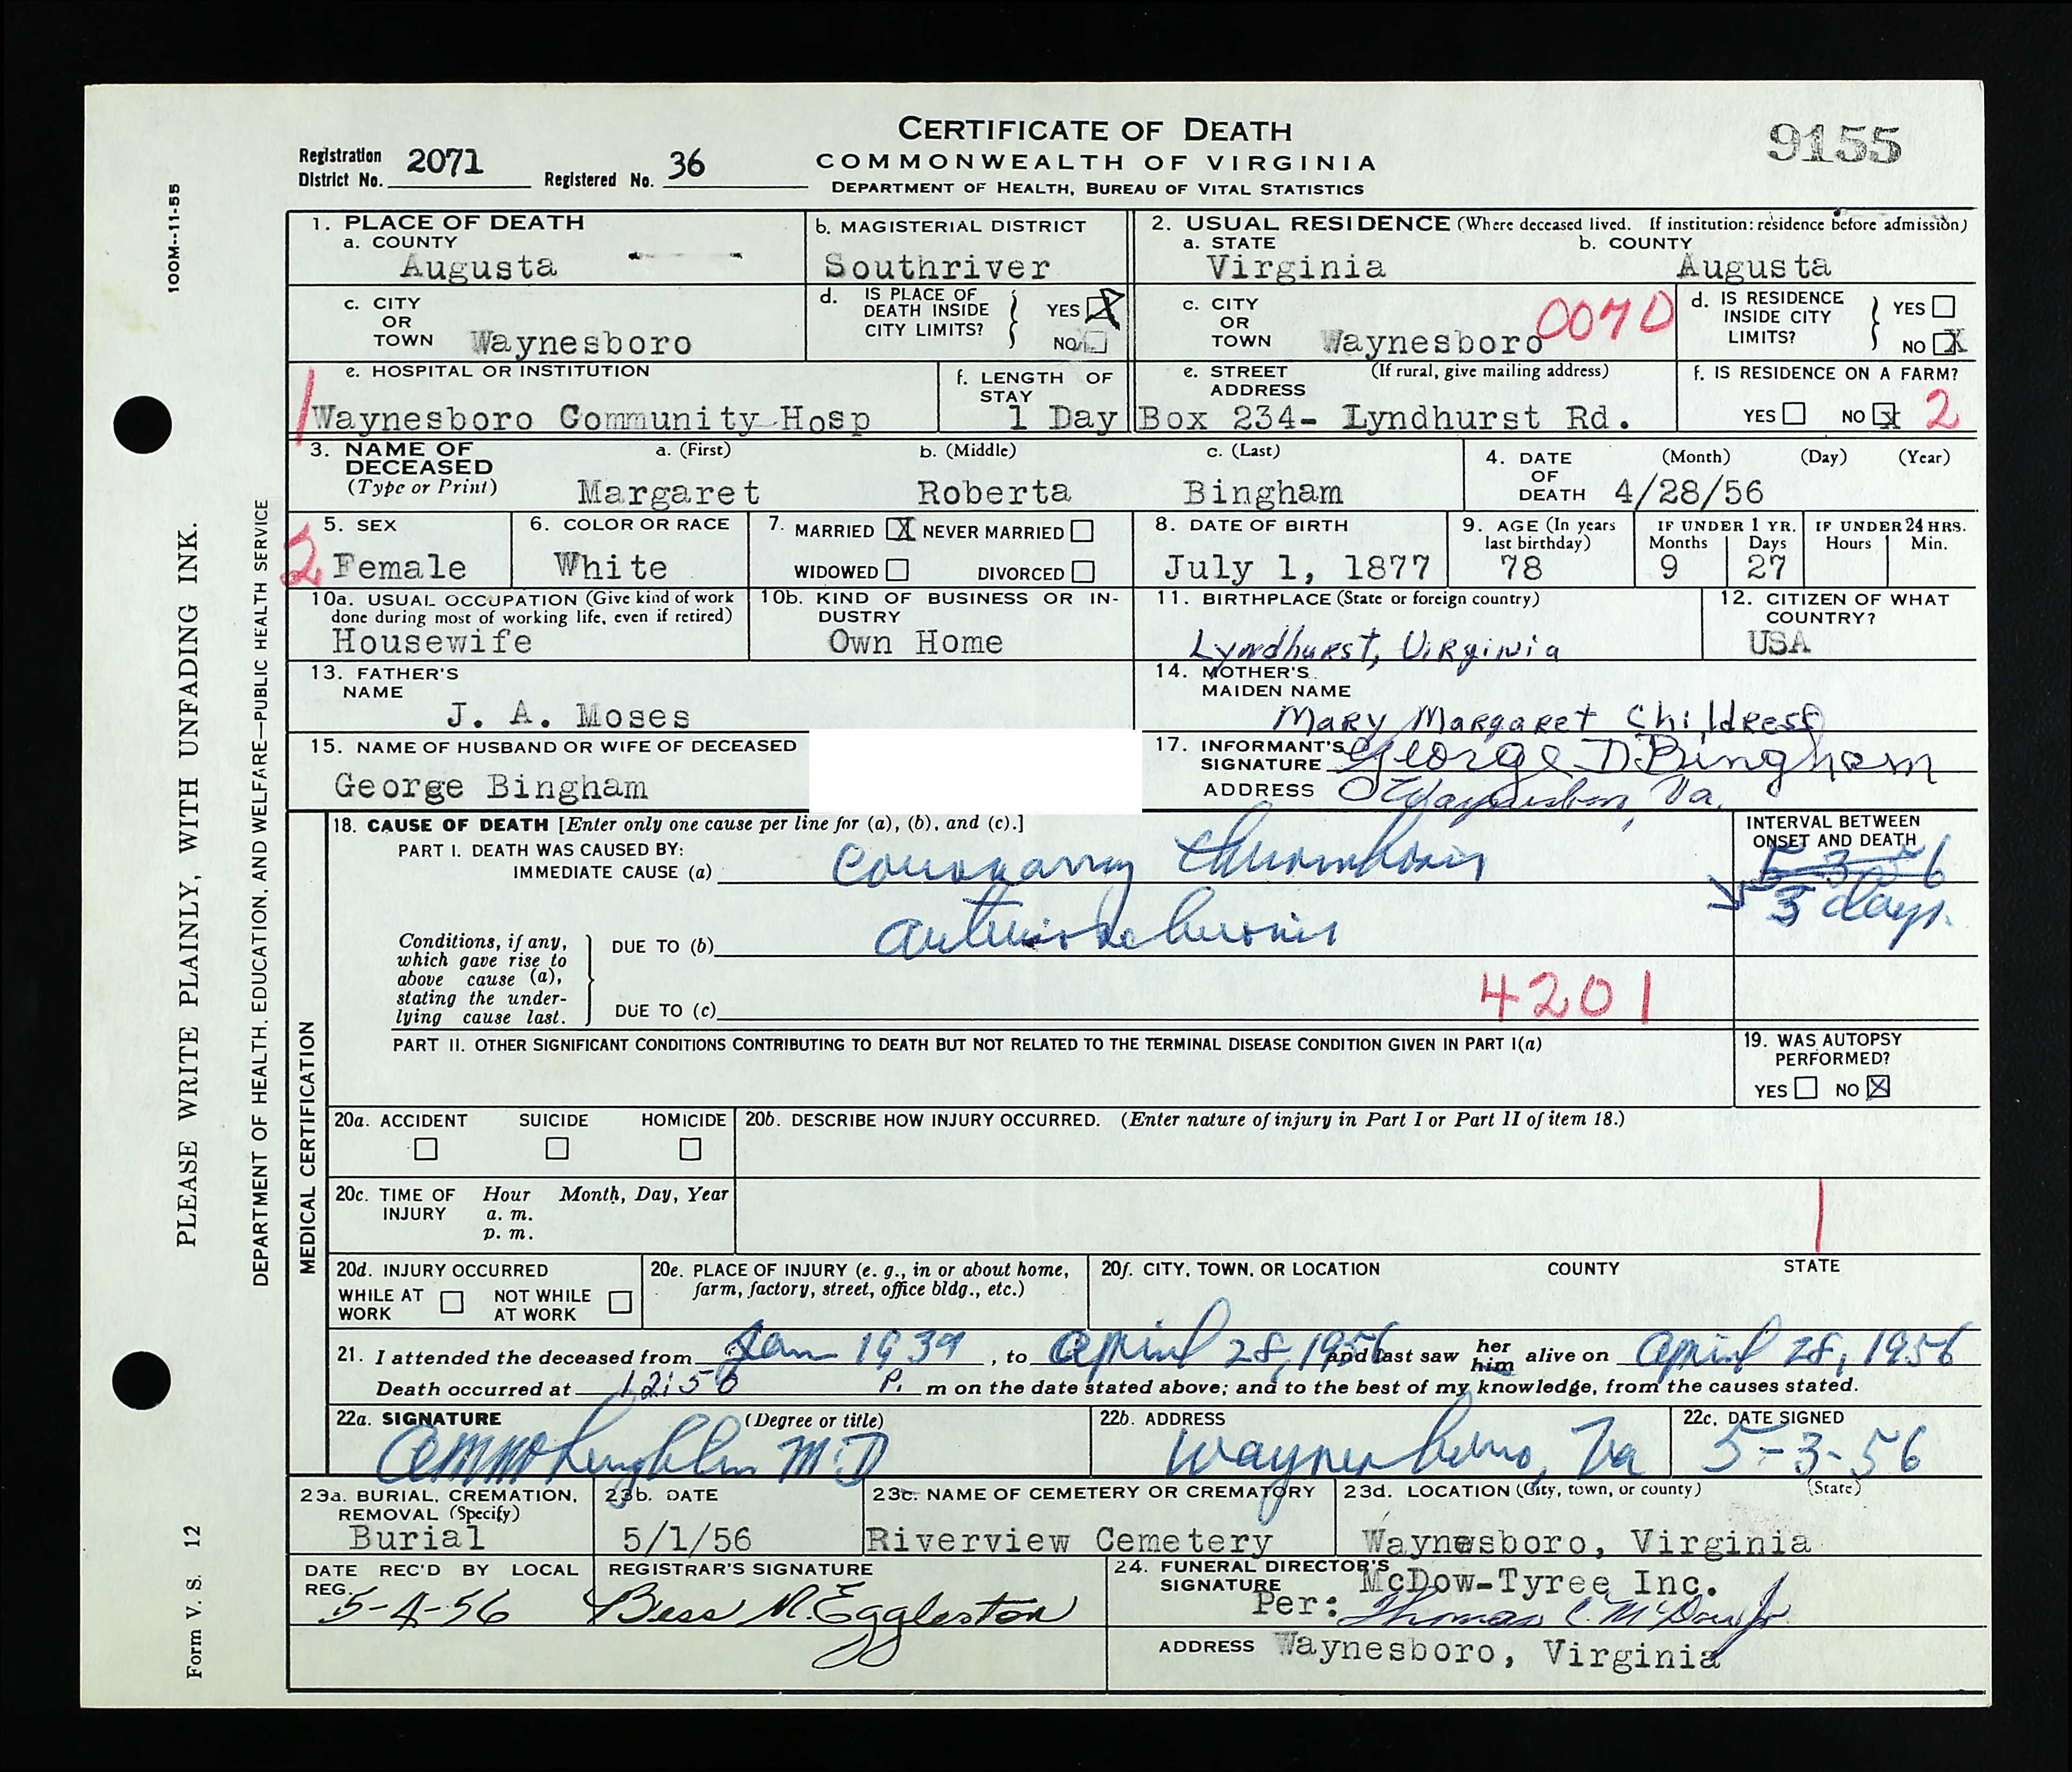 CERTIFICATE OF DEATH
COMMONWEALTH OF VIRGINIA
DEPARTMENT OF HEALTH, BUREAU OF VITAL STATISTICS
9155
Registration District No. 2071 Registered No. 36
100M--11-55
PLEASE WRITE PLAINLY, WITH UNFADING INK.
DEPARTMENT OF HEALTH, EDUCATION, AND WELFARE—PUBLIC HEALTH SERVICE
Form V. S. 12
1. PLACE OF DEATH
a. COUNTY
Augusta
b. MAGISTERIAL DISTRICT
Southriver
2. USUAL RESIDENCE (Where deceased lived. If institution: residence before admission)
a. STATE
Virginia
b. COUNTY
Augusta
c. CITY OR TOWN Waynesboro
d. IS PLACE OF DEATH INSIDE CITY LIMITS? YES X NO
c. CITY OR TOWN Waynesboro 007D
d. IS RESIDENCE INSIDE CITY LIMITS? YES NO X
e. HOSPITAL OR INSTITUTION
1 Waynesboro Community Hosp
f. LENGTH OF STAY
1 Day
e. STREET ADDRESS (If rural, give mailing address)
Box 234- Lyndhurst Rd.
f. IS RESIDENCE ON A FARM?
YES NO x 2
3. NAME OF DECEASED (Type or Print)
a. (First) b. (Middle) c. (Last)
Margaret Roberta Bingham
4. DATE OF DEATH (Month) (Day) (Year)
4/28/56
5. SEX
2 Female
6. COLOR OR RACE
White
7. MARRIED X NEVER MARRIED
WIDOWED DIVORCED
8. DATE OF BIRTH
July 1, 1877
9. AGE (In years last birthday)
78
IF UNDER 1 YR. Months Days
9 27
IF UNDER 24 HRS. Hours Min.
10a. USUAL OCCUPATION (Give kind of work done during most of working life, even if retired)
Housewife
10b. KIND OF BUSINESS OR INDUSTRY
Own Home
11. BIRTHPLACE (State or foreign country)
Lyndhurst, Virginia
12. CITIZEN OF WHAT COUNTRY?
USA
13. FATHER'S NAME
J. A. Moses
14. MOTHER'S MAIDEN NAME
Mary Margaret Childress
15. NAME OF HUSBAND OR WIFE OF DECEASED
George Bingham
17. INFORMANT'S SIGNATURE George D. Bingham
ADDRESS Waynesboro, Va.
MEDICAL CERTIFICATION
18. CAUSE OF DEATH [Enter only one cause per line for (a), (b), and (c).]
PART I. DEATH WAS CAUSED BY:
IMMEDIATE CAUSE (a) Coronary thrombosis
INTERVAL BETWEEN ONSET AND DEATH
5-3-56
3 days.
Conditions, if any, which gave rise to above cause (a), stating the underlying cause last.
DUE TO (b) arteriosclerosis
DUE TO (c)
4201
PART II. OTHER SIGNIFICANT CONDITIONS CONTRIBUTING TO DEATH BUT NOT RELATED TO THE TERMINAL DISEASE CONDITION GIVEN IN PART I(a)
19. WAS AUTOPSY PERFORMED?
YES NO X
20a. ACCIDENT SUICIDE HOMICIDE
20b. DESCRIBE HOW INJURY OCCURRED. (Enter nature of injury in Part I or Part II of item 18.)
20c. TIME OF INJURY Hour Month, Day, Year
a. m.
p. m.
1
20d. INJURY OCCURRED
WHILE AT WORK NOT WHILE AT WORK
20e. PLACE OF INJURY (e. g., in or about home, farm, factory, street, office bldg., etc.)
20f. CITY, TOWN, OR LOCATION COUNTY STATE
21. I attended the deceased from Jan 1939, to April 28, 1956 and last saw her him alive on April 28, 1956
Death occurred at 12:50 P. m on the date stated above; and to the best of my knowledge, from the causes stated.
22a. SIGNATURE (Degree or title)
M D
22b. ADDRESS
Waynesboro, Va
22c. DATE SIGNED
5-3-56
23a. BURIAL, CREMATION, REMOVAL (Specify)
Burial
23b. DATE
5/1/56
23c. NAME OF CEMETERY OR CREMATORY
Riverview Cemetery
23d. LOCATION (City, town, or county) (State)
Waynesboro, Virginia
DATE REC'D BY LOCAL REG.
5-4-56
REGISTRAR'S SIGNATURE
Bess M. Eggleston
24. FUNERAL DIRECTOR'S SIGNATURE McDow-Tyree Inc.
Per: Thomas C. McDow Jr
ADDRESS Waynesboro, Virginia